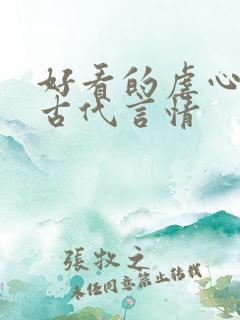 好看的虐心
古代言情
張牧之
未经同意禁止转载